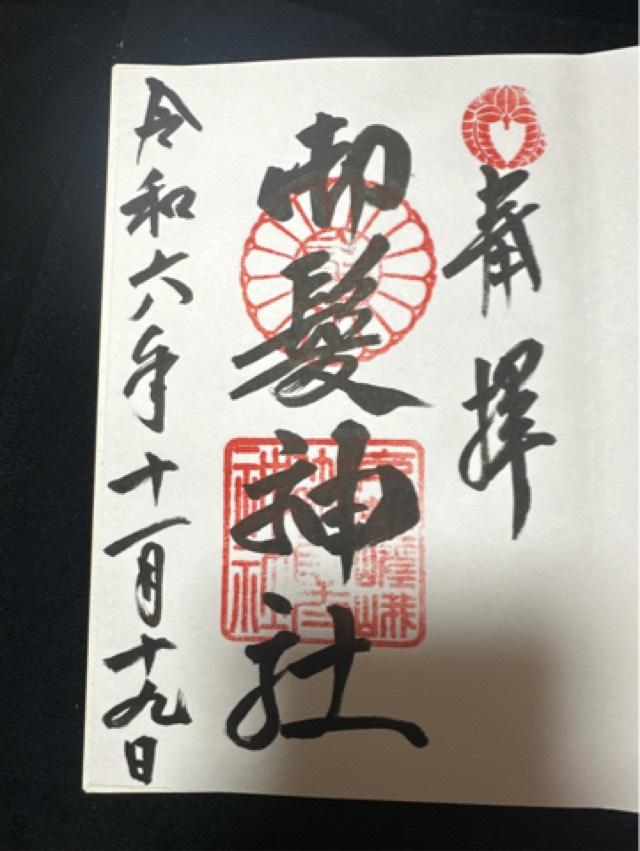 奉拝
御髪神社
令和六年十一月十九日